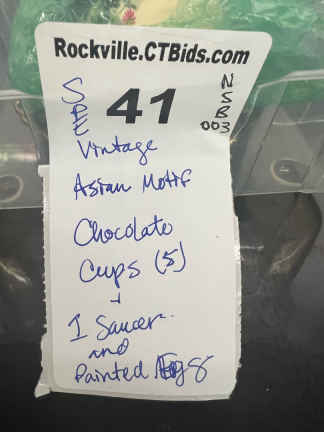 Rockville.CTBids.com
SPE 41 NSB 003
Vintage
Asian Motif
Chocolate
Cups (5)
+
1 Saucer
and
Painted Egg